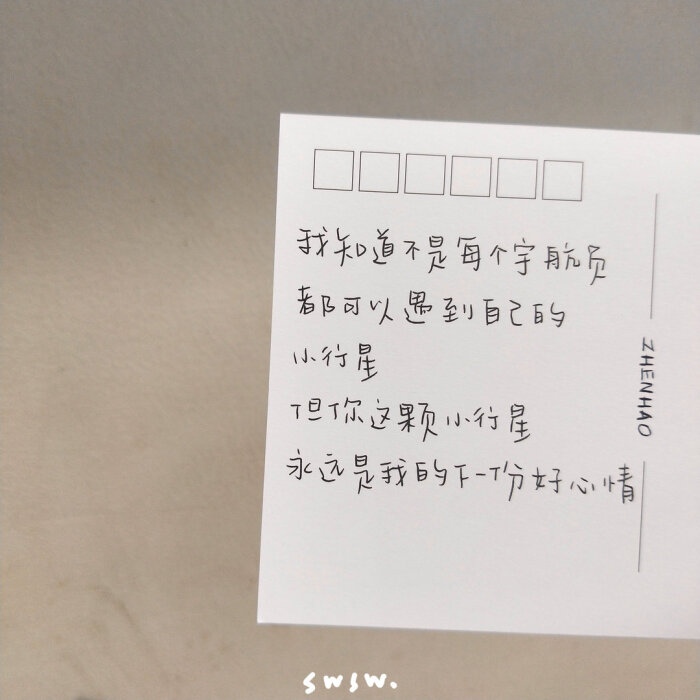 我知道不是每个宇航员
都可以遇到自己的
小行星
但你这颗小行星
永远是我的下一份好心情
ZHENHAO
swsw.